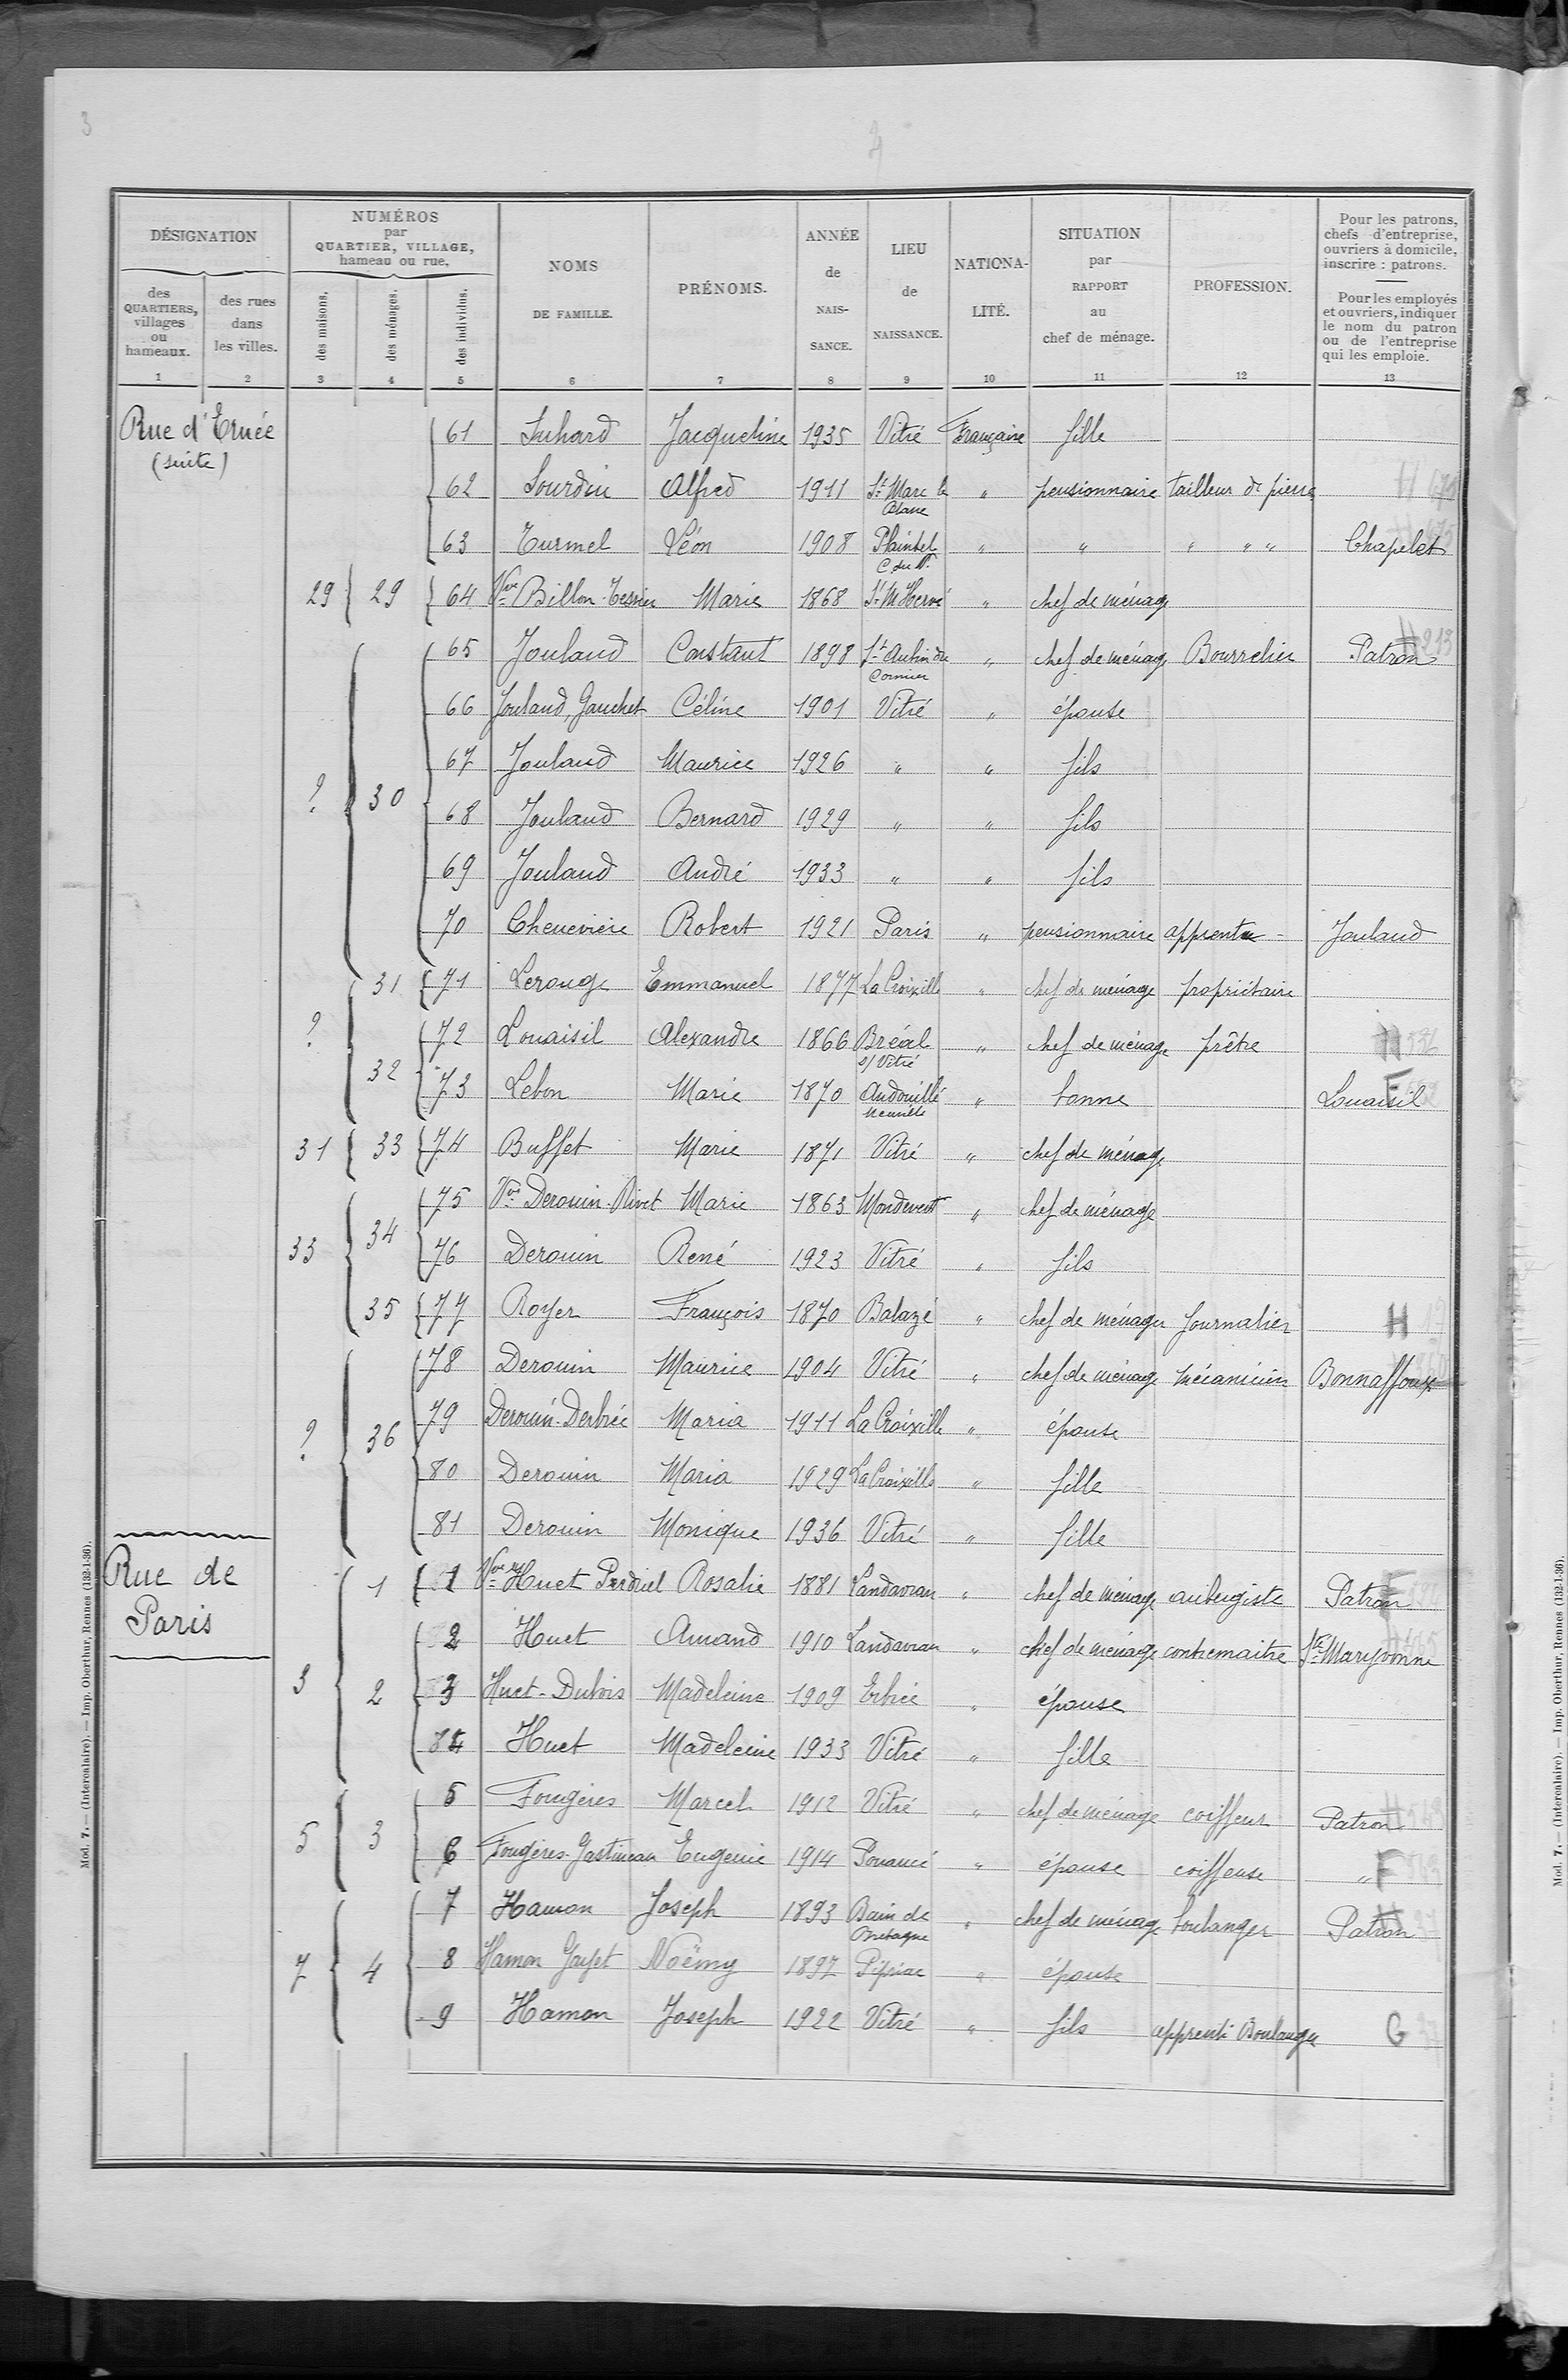 3
DÉSIGNATION
des QUARTIERS, villages ou hameaux.
des rues dans les villes.
NUMÉROS par QUARTIER, VILLAGE, hameau ou rue.
des maisons.
des ménages.
des individus.
NOMS DE FAMILLE.
PRÉNOMS.
ANNÉE de NAIS- SANCE.
LIEU de NAISSANCE.
NATIONA- LITÉ.
SITUATION par RAPPORT au chef de ménage.
PROFESSION.
Pour les patrons, chefs d'entreprise, ouvriers à domicile, inscrire : patrons.
Pour les employés et ouvriers, indiquer le nom du patron ou de l'entreprise qui les emploie.
1 2 3 4 5 6 7 8 9 10 11 12 13
Rue d'Ernée (suite)
61 Juhard Jacqueline 1935 Vitré Française fille
62 Lourdin Alfred 1911 St Marc le Blanc " pensionnaire tailleur de pierre H
63 Turmel Léon 1908 Plaintel C. du N. " " " " " Chapelet
29 29 64 Vve Billon-Tesnier Marie 1868 St M'Hervé " chef de ménage
65 Jouland Constant 1898 St Aubin du Cormier " chef de ménage Bourrelier Patron H 213
66 Jouland, Gauchet Céline 1901 Vitré " épouse
67 Jouland Maurice 1926 " " fils
? 30
68 Jouland Bernard 1929 " " fils
69 Jouland André 1933 " " fils
70 Cheneviere Robert 1921 Paris " pensionnaire apprenti Jouland
31 71 Lerouge Emmanuel 1877 La Croixille " chef de ménage propriétaire
?
72 Louaisil Alexandre 1866 Bréal s/ Vitré " chef de ménage prêtre H
32
73 Lebon Marie 1870 Andouillé Neuville " bonne Louaisil F
31 33 74 Buffet Marie 1871 Vitré " chef de ménage
75 Vve Derouin-Rivet Marie 1863 Mondevert " chef de ménage
33 34
76 Derouin René 1923 Vitré " fils
35 77 Royer François 1870 Balazé " chef de ménage journalier H
78 Derouin Maurice 1904 Vitré " chef de ménage mécanicien Bonnaffoux
79 Derouin-Derbrée Maria 1911 La Croixille " épouse
? 36
80 Derouin Maria 1929 La Croixille " fille
81 Derouin Monique 1936 Vitré " fille
Rue de Paris
1 1 Vve Huet Perdriel Rosalie 1881 Landavran " chef de ménage aubergiste Patron F
2 Huet Amand 1910 Landavran " chef de ménage contremaitre Ste Maryvonne
3 2
3 Huet-Dubois Madeleine 1909 Erbrée " épouse
84 Huet Madeleine 1933 Vitré " fille
5 Fougères Marcel 1912 Vitré " chef de ménage coiffeur Patron
5 3
6 Fougères-Gastineau Eugenie 1914 Pouancé " épouse coiffeuse " F
7 Hamon Joseph 1893 Bain de Bretagne " chef de ménage boulanger Patron
7 4
8 Hamon Gayet Noëmy 1897 Pipriac " épouse
9 Hamon Joseph 1922 Vitré " fils apprenti Boulanger G
Mod. 7. — (Intercalaire). — Imp. Oberthur, Rennes (132-1-36).
Mod. 7. — (Intercalaire). — Imp. Oberthur, Rennes (132-1-36).